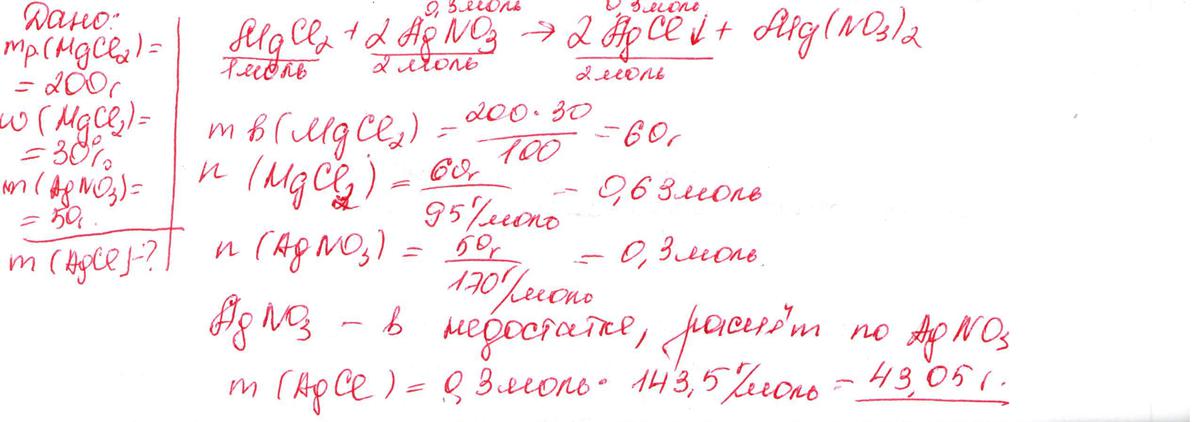 Дано:
mр(MgCl2)=
= 200г
w(MgCl2)=
= 30%
m(AgNO3)=
= 50г
m(AgCl)-?
0,3моль 0,3моль
MgCl2 + 2AgNO3 → 2AgCl↓ + Mg(NO3)2
1моль 2моль 2моль
m в(MgCl2) = 200·30/100 = 60г
n (MgCl2) = 60г/95г/моль = 0,63моль
n (AgNO3) = 50г/170г/моль = 0,3моль.
AgNO3 – в недостатке, расчёт по AgNO3
m(AgCl) = 0,3моль· 143,5г/моль = 43,05г.